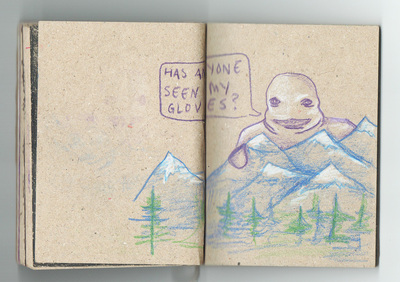 HAS ANYONE
SEEN MY
GLOVES?